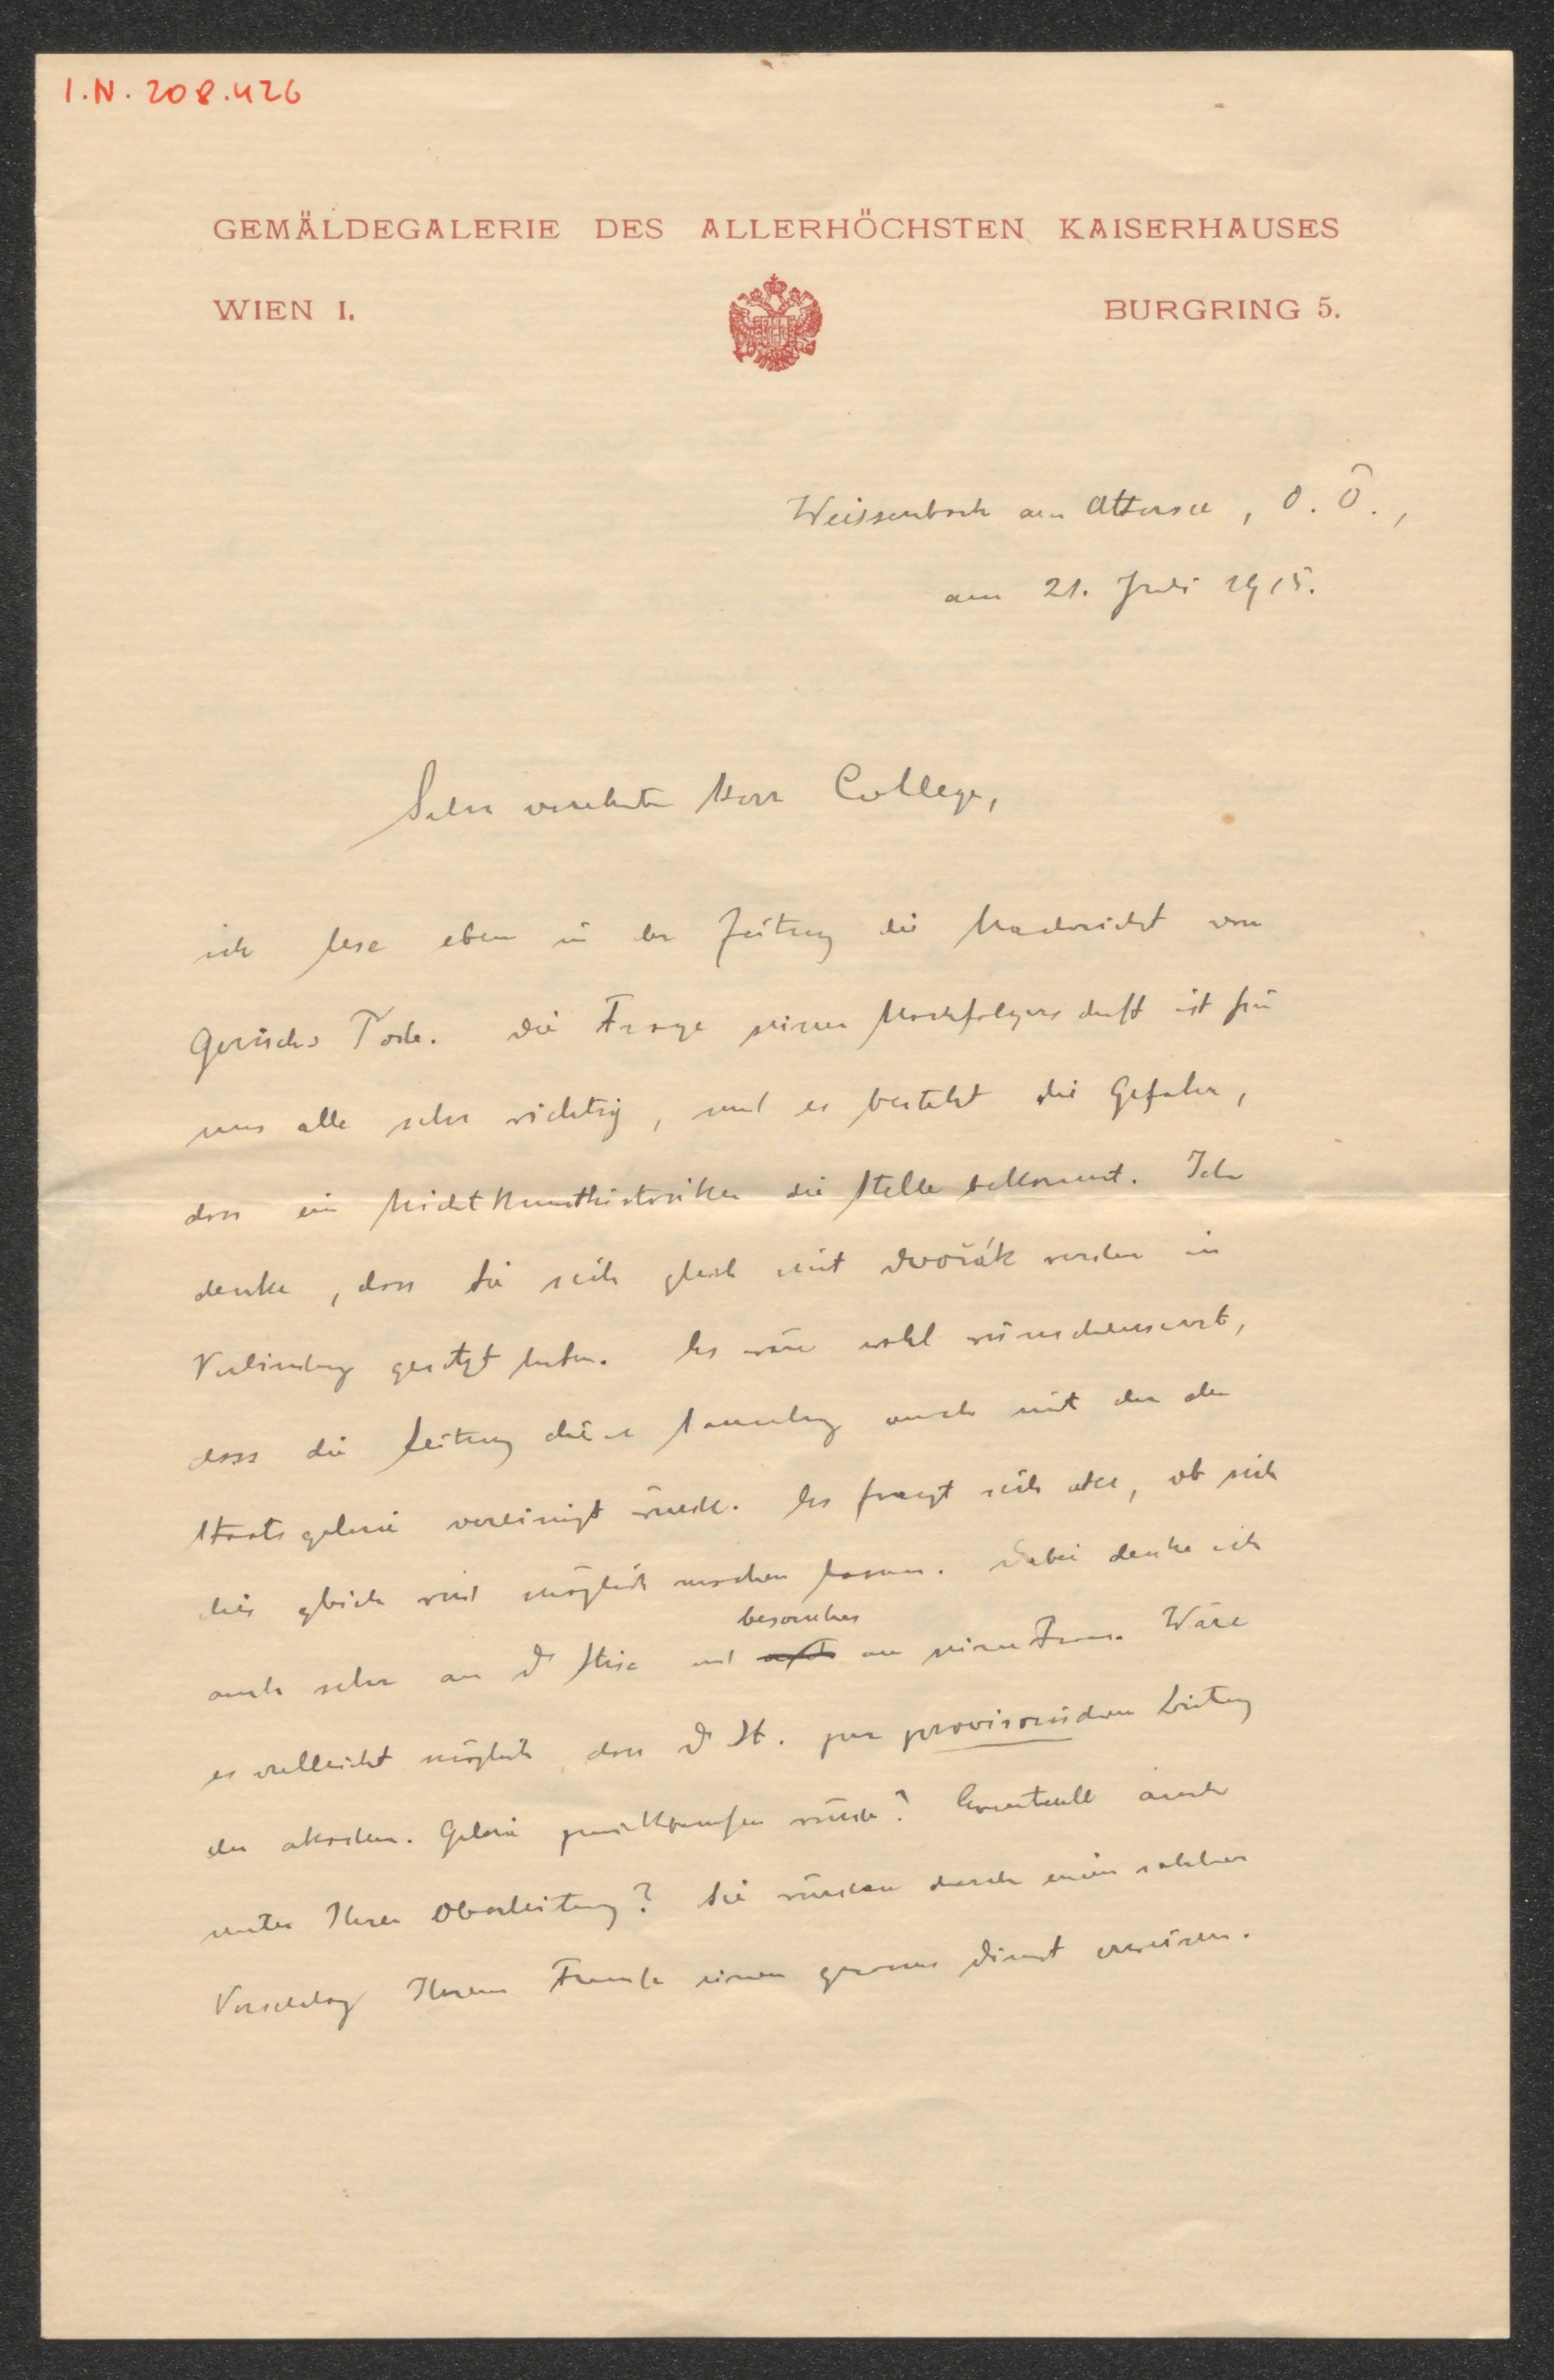 I.N. 208.426
GEMÄLDEGALERIE DES ALLERHÖCHSTEN KAISERHAUSES
WIEN I. BURGRING 5.
Weissenbach am Attersee, O.Ö.,
am 21. Juli 1915.
Sehr verehrter Herr College,
ich lese eben in der Zeitung die Nachricht von
Gerischs Tode. Die Frage seiner Nachfolgerschaft ist für
uns alle sehr wichtig, und es besteht die Gefahr,
dass ein Nichtkunsthistoriker die Stelle bekommt. Ich
denke, dass Sie sich gleich mit Dvořák werden in
Verbindung gesetzt haben. Es wäre wohl wünschenswert,
dass die Leitung dieser Sammlung auch mit der der
Staatsgalerie vereinigt würde. Es fragt sich aber, ob sich
dies gleich wird möglich machen lassen. Dabei denke ich
auch sehr an Dr Stix und besonders an seine Frau. Wäre
es vielleicht möglich, dass Dr St. zur provisorischen Leitung
der akadem. Galerie zurückberufen würde? Eventuell auch
unter Ihrer Oberleitung? Sie würden durch einen solchen
Vorschlag Ihrem Freunde einen grossen Dienst erweisen.